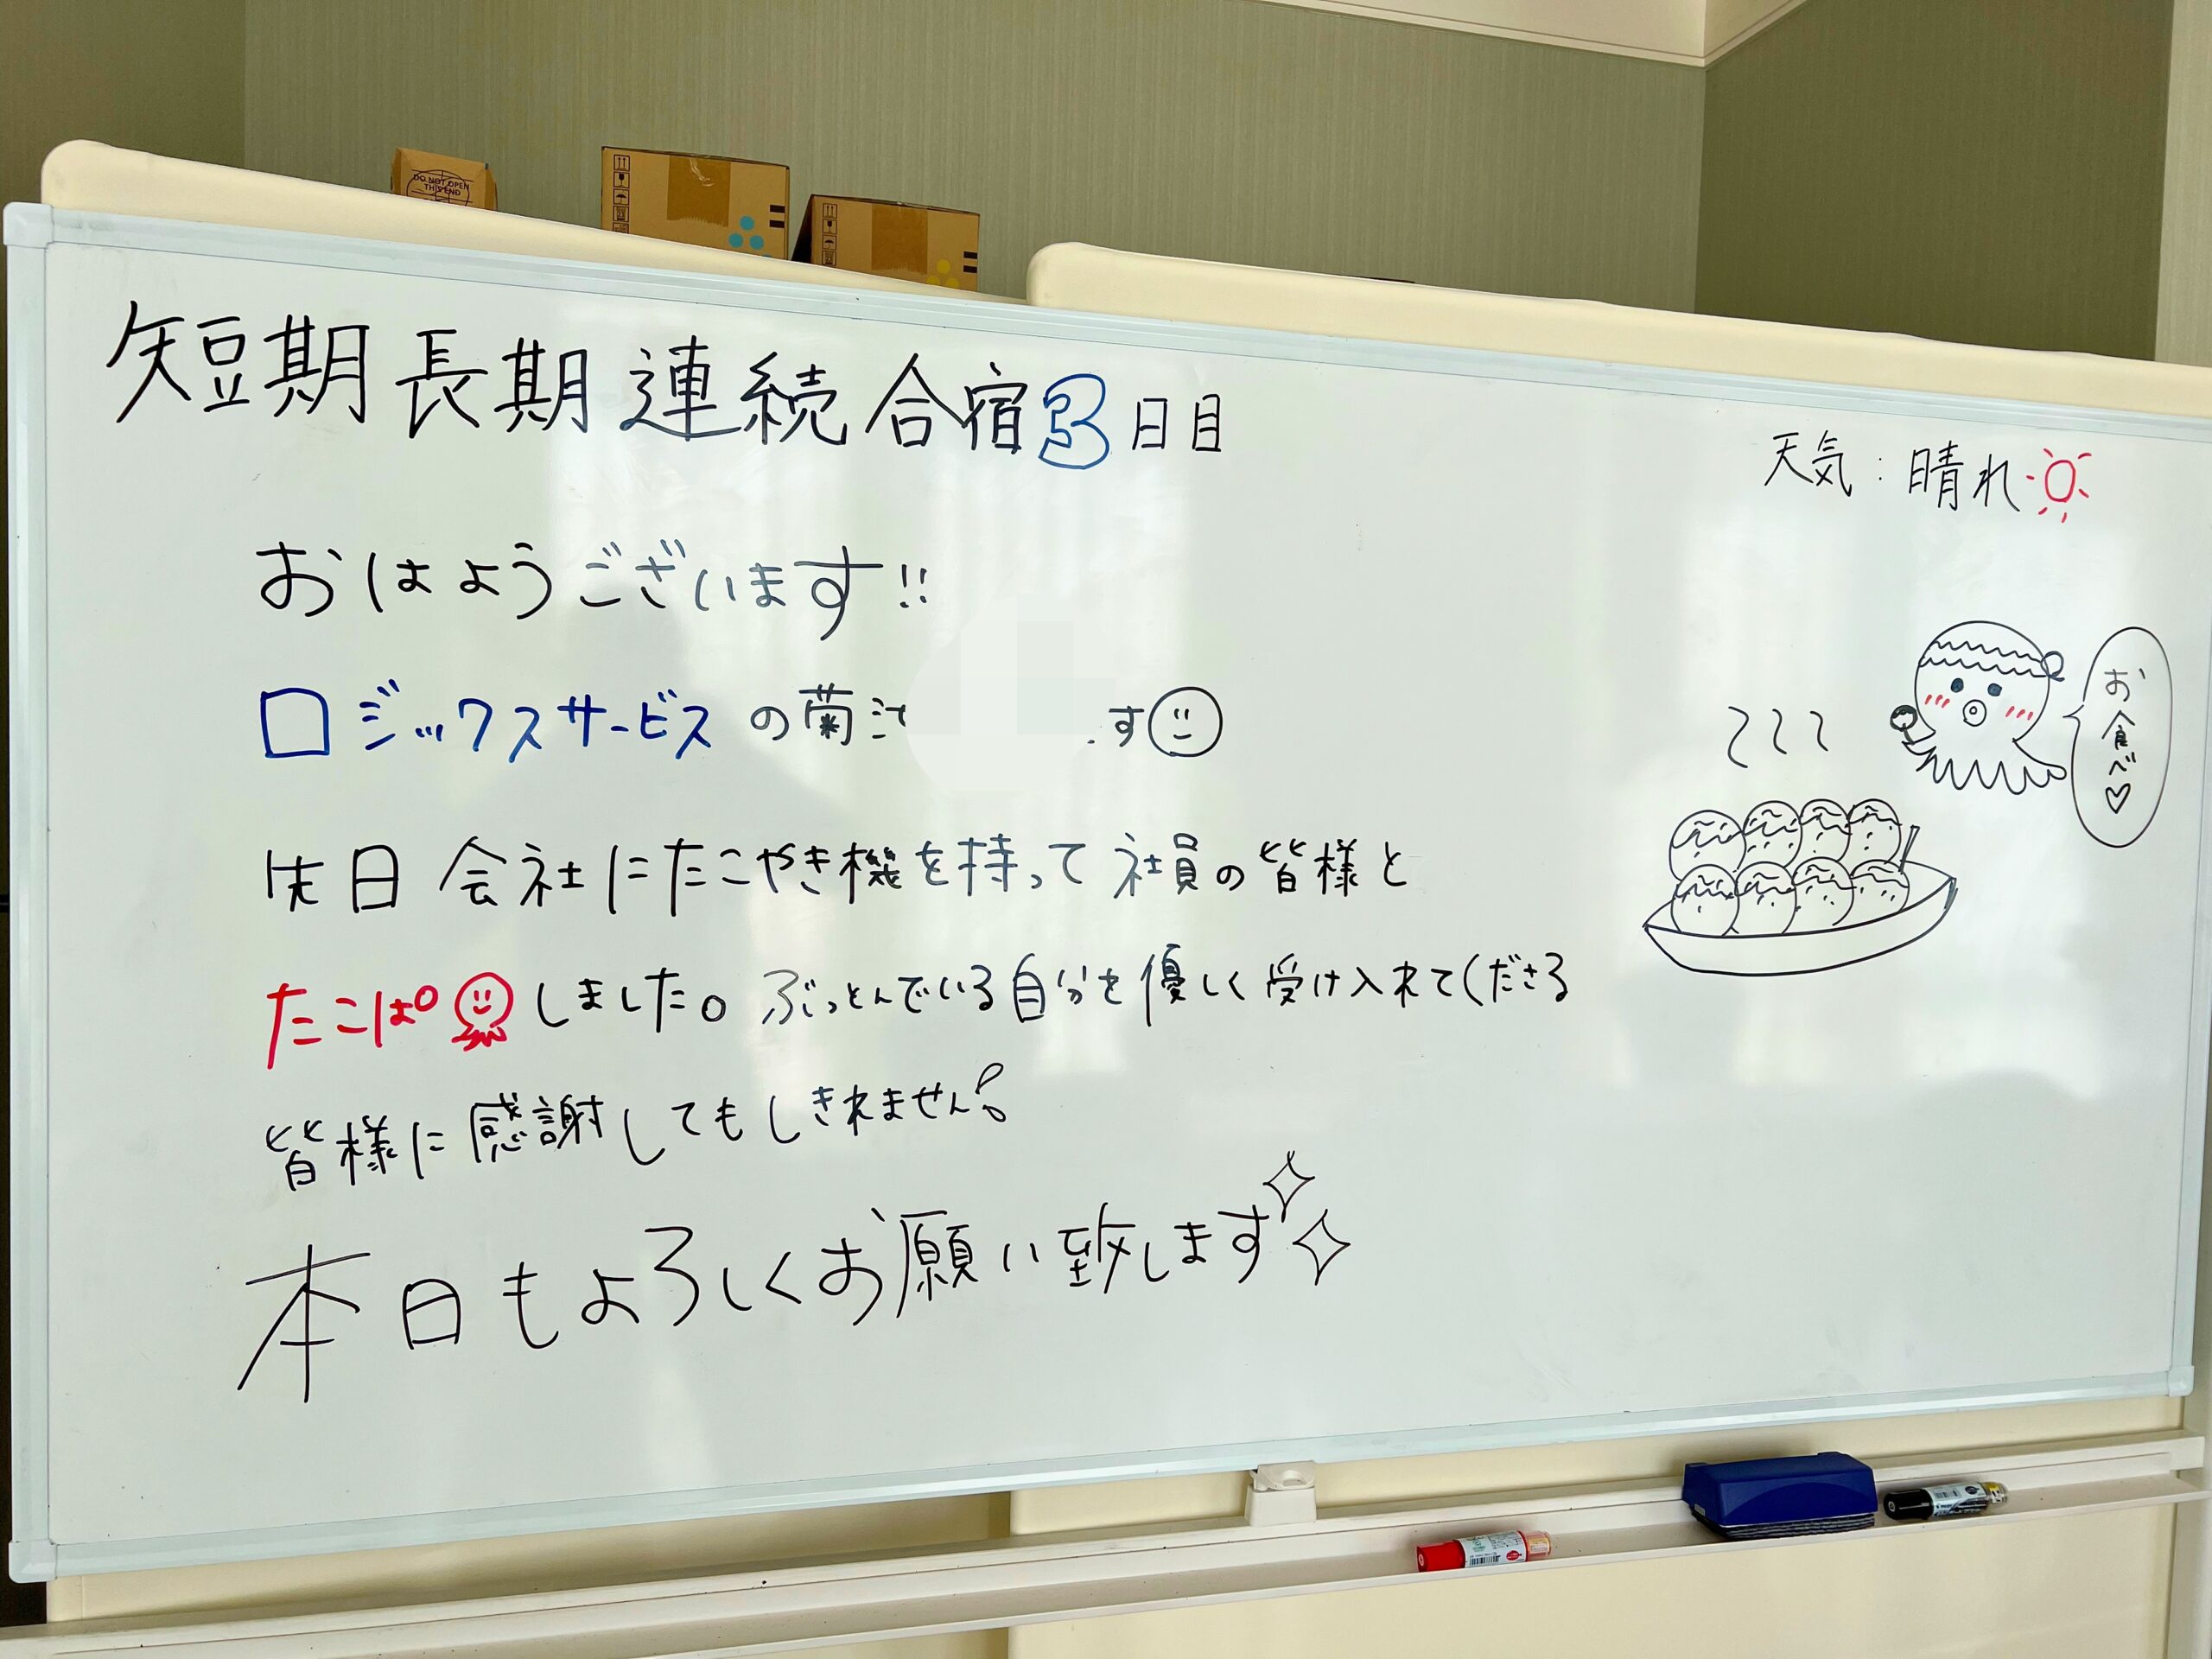 短期長期連続合宿3日目
天気：晴れ
おはようございます!!
ロジックスサービスの菊
す
先日会社にたこやき機を持って社員の皆様と
たこぱしました。ぶっとんでいる自分を優しく受け入れてくださる
皆様に感謝してもしきれません!
本日もよろしくお願い致します
お食べ♡
DO NOT OPEN
THIS END